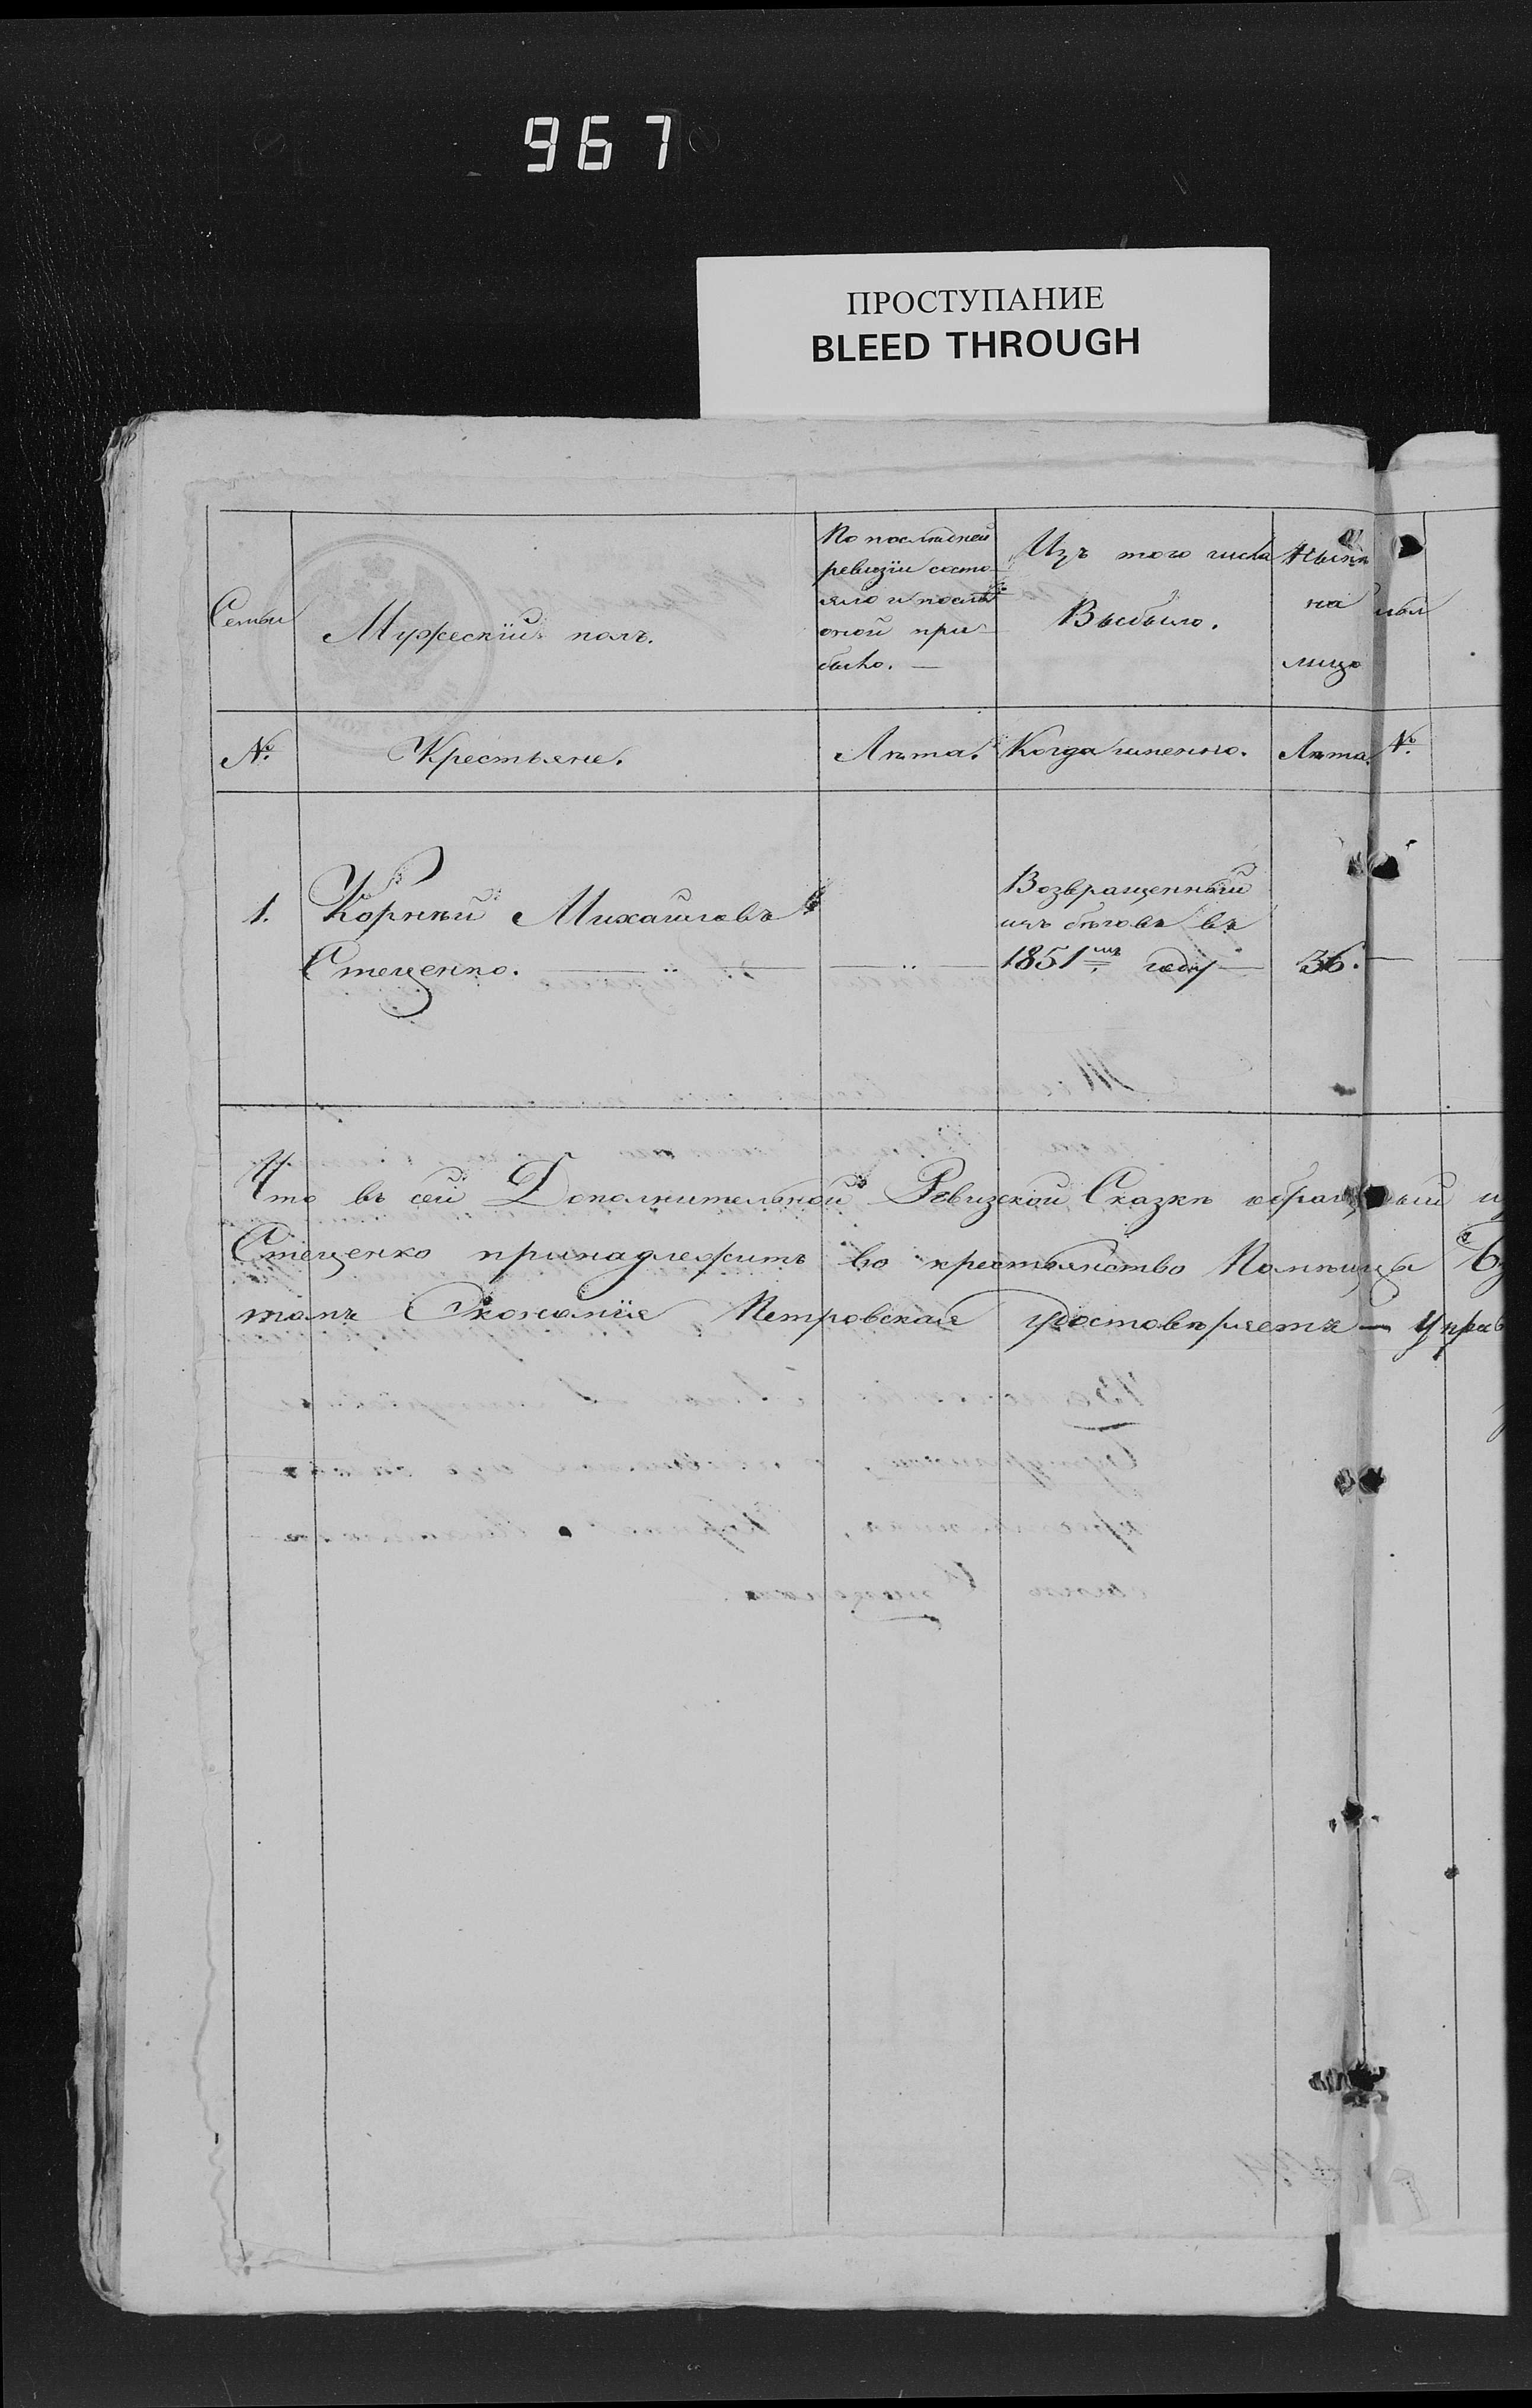 967
ПРОСТУПАНИЕ
BLEED THROUGH
Семьи
Мужескій полъ.
По последней
ревизіи состо
яло и послѣ
оной при
было.
Изъ того числа
Выбыло.
Нынѣ
на
лицо
№
Крестьяне.
Лѣта.
Когда именно.
Лѣта.
№
1. Корнѣй Михайловъ
Стеценко.
Возвращенный
изъ бѣговъ въ
1851мъ году
36.
Что въ сей Дополнительной Ревизской Сказкѣ
Стеценко принадлежитъ во крестьянство Помѣщицы
томъ Экономія Петровская удостовѣряетъ — Управ